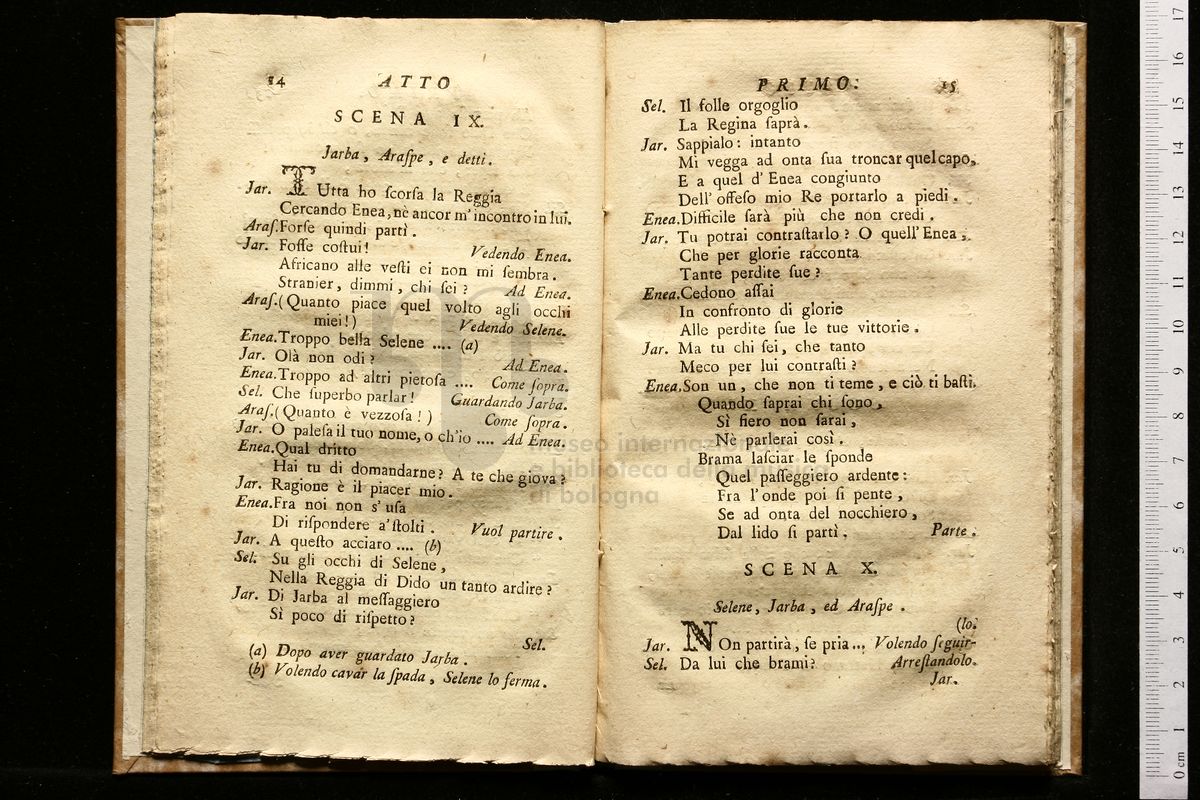 24 ATTO
SCENA IX.
Jarba, Araſpe, e detti.
Jar. TUtta ho ſcorſa la Reggia
Cercando Enea, nè ancor m' incontro in lui.
Araſ. Forſe quindi partì.
Jar. Foſſe coſtui! Vedendo Enea.
Africano alle veſti ei non mi ſembra.
Stranier, dimmi, chi ſei? Ad Enea.
Araſ. (Quanto piace quel volto agli occhi
miei!) Vedendo Selene.
Enea. Troppo bella Selene .... (a)
Jar. Olà non odi? Ad Enea.
Enea. Troppo ad altri pietoſa .... Come ſopra.
Sel. Che ſuperbo parlar! Guardando Jarba.
Araſ. (Quanto è vezzoſa!) Come ſopra.
Jar. O paleſa il tuo nome, o ch'io .... Ad Enea.
Enea. Qual dritto
Hai tu di domandarne? A te che giova?
Jar. Ragione è il piacer mio.
Enea. Fra noi non s' uſa
Di riſpondere a' ſtolti. Vuol partire.
Jar. A queſto acciaro .... (b)
Sel. Su gli occhi di Selene,
Nella Reggia di Dido un tanto ardire?
Jar. Di Jarba al meſſaggiero
Sì poco di riſpetto?
Sel.
(a) Dopo aver guardato Jarba.
(b) Volendo cavar la ſpada, Selene lo ferma.
PRIMO. 25
Sel. Il folle orgoglio
La Regina ſaprà.
Jar. Sappialo: intanto
Mi vegga ad onta ſua troncar quel capo,
E a quel d' Enea congiunto
Dell' offeſo mio Re portarlo a piedi.
Enea. Difficile ſarà più che non credi.
Jar. Tu potrai contraſtarlo? O quell' Enea,
Che per glorie racconta
Tante perdite ſue?
Enea. Cedono aſſai
In confronto di glorie
Alle perdite ſue le tue vittorie.
Jar. Ma tu chi ſei, che tanto
Meco per lui contraſti?
Enea. Son un, che non ti teme, e ciò ti baſti.
Quando ſaprai chi ſono,
Sì fiero non ſarai,
Nè parlerai così.
Brama laſciar le ſponde
Quel paſſeggiero ardente:
Fra l'onde poi ſi pente,
Se ad onta del nocchiero,
Dal lido ſi partì. Parte.
SCENA X.
Selene, Jarba, ed Araſpe.
(lo.
Jar. NOn partirà, ſe pria... Volendo ſeguir-
Sel. Da lui che brami? Arreſtandolo.
Jar.
museo internazionale
e biblioteca della musica
di bologna
0 cm 1 2 3 4 5 6 7 8 9 10 11 12 13 14 15 16 17